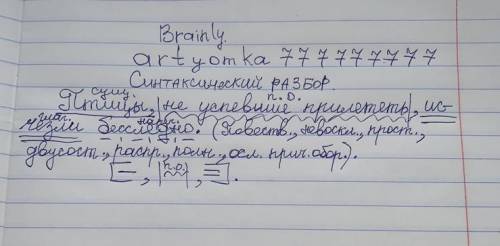 Brainly.
artyomka 77777777
Синтаксический разбор.
сущ. п.о.
Птицы, |не успевшие прилететь|, ис-
глаг. нареч.
чезли бесследно. (Повеств., невоскл., прост.,
двусост., распр., полн., осл. прич. обор.).
[—, |п.о.|, =].